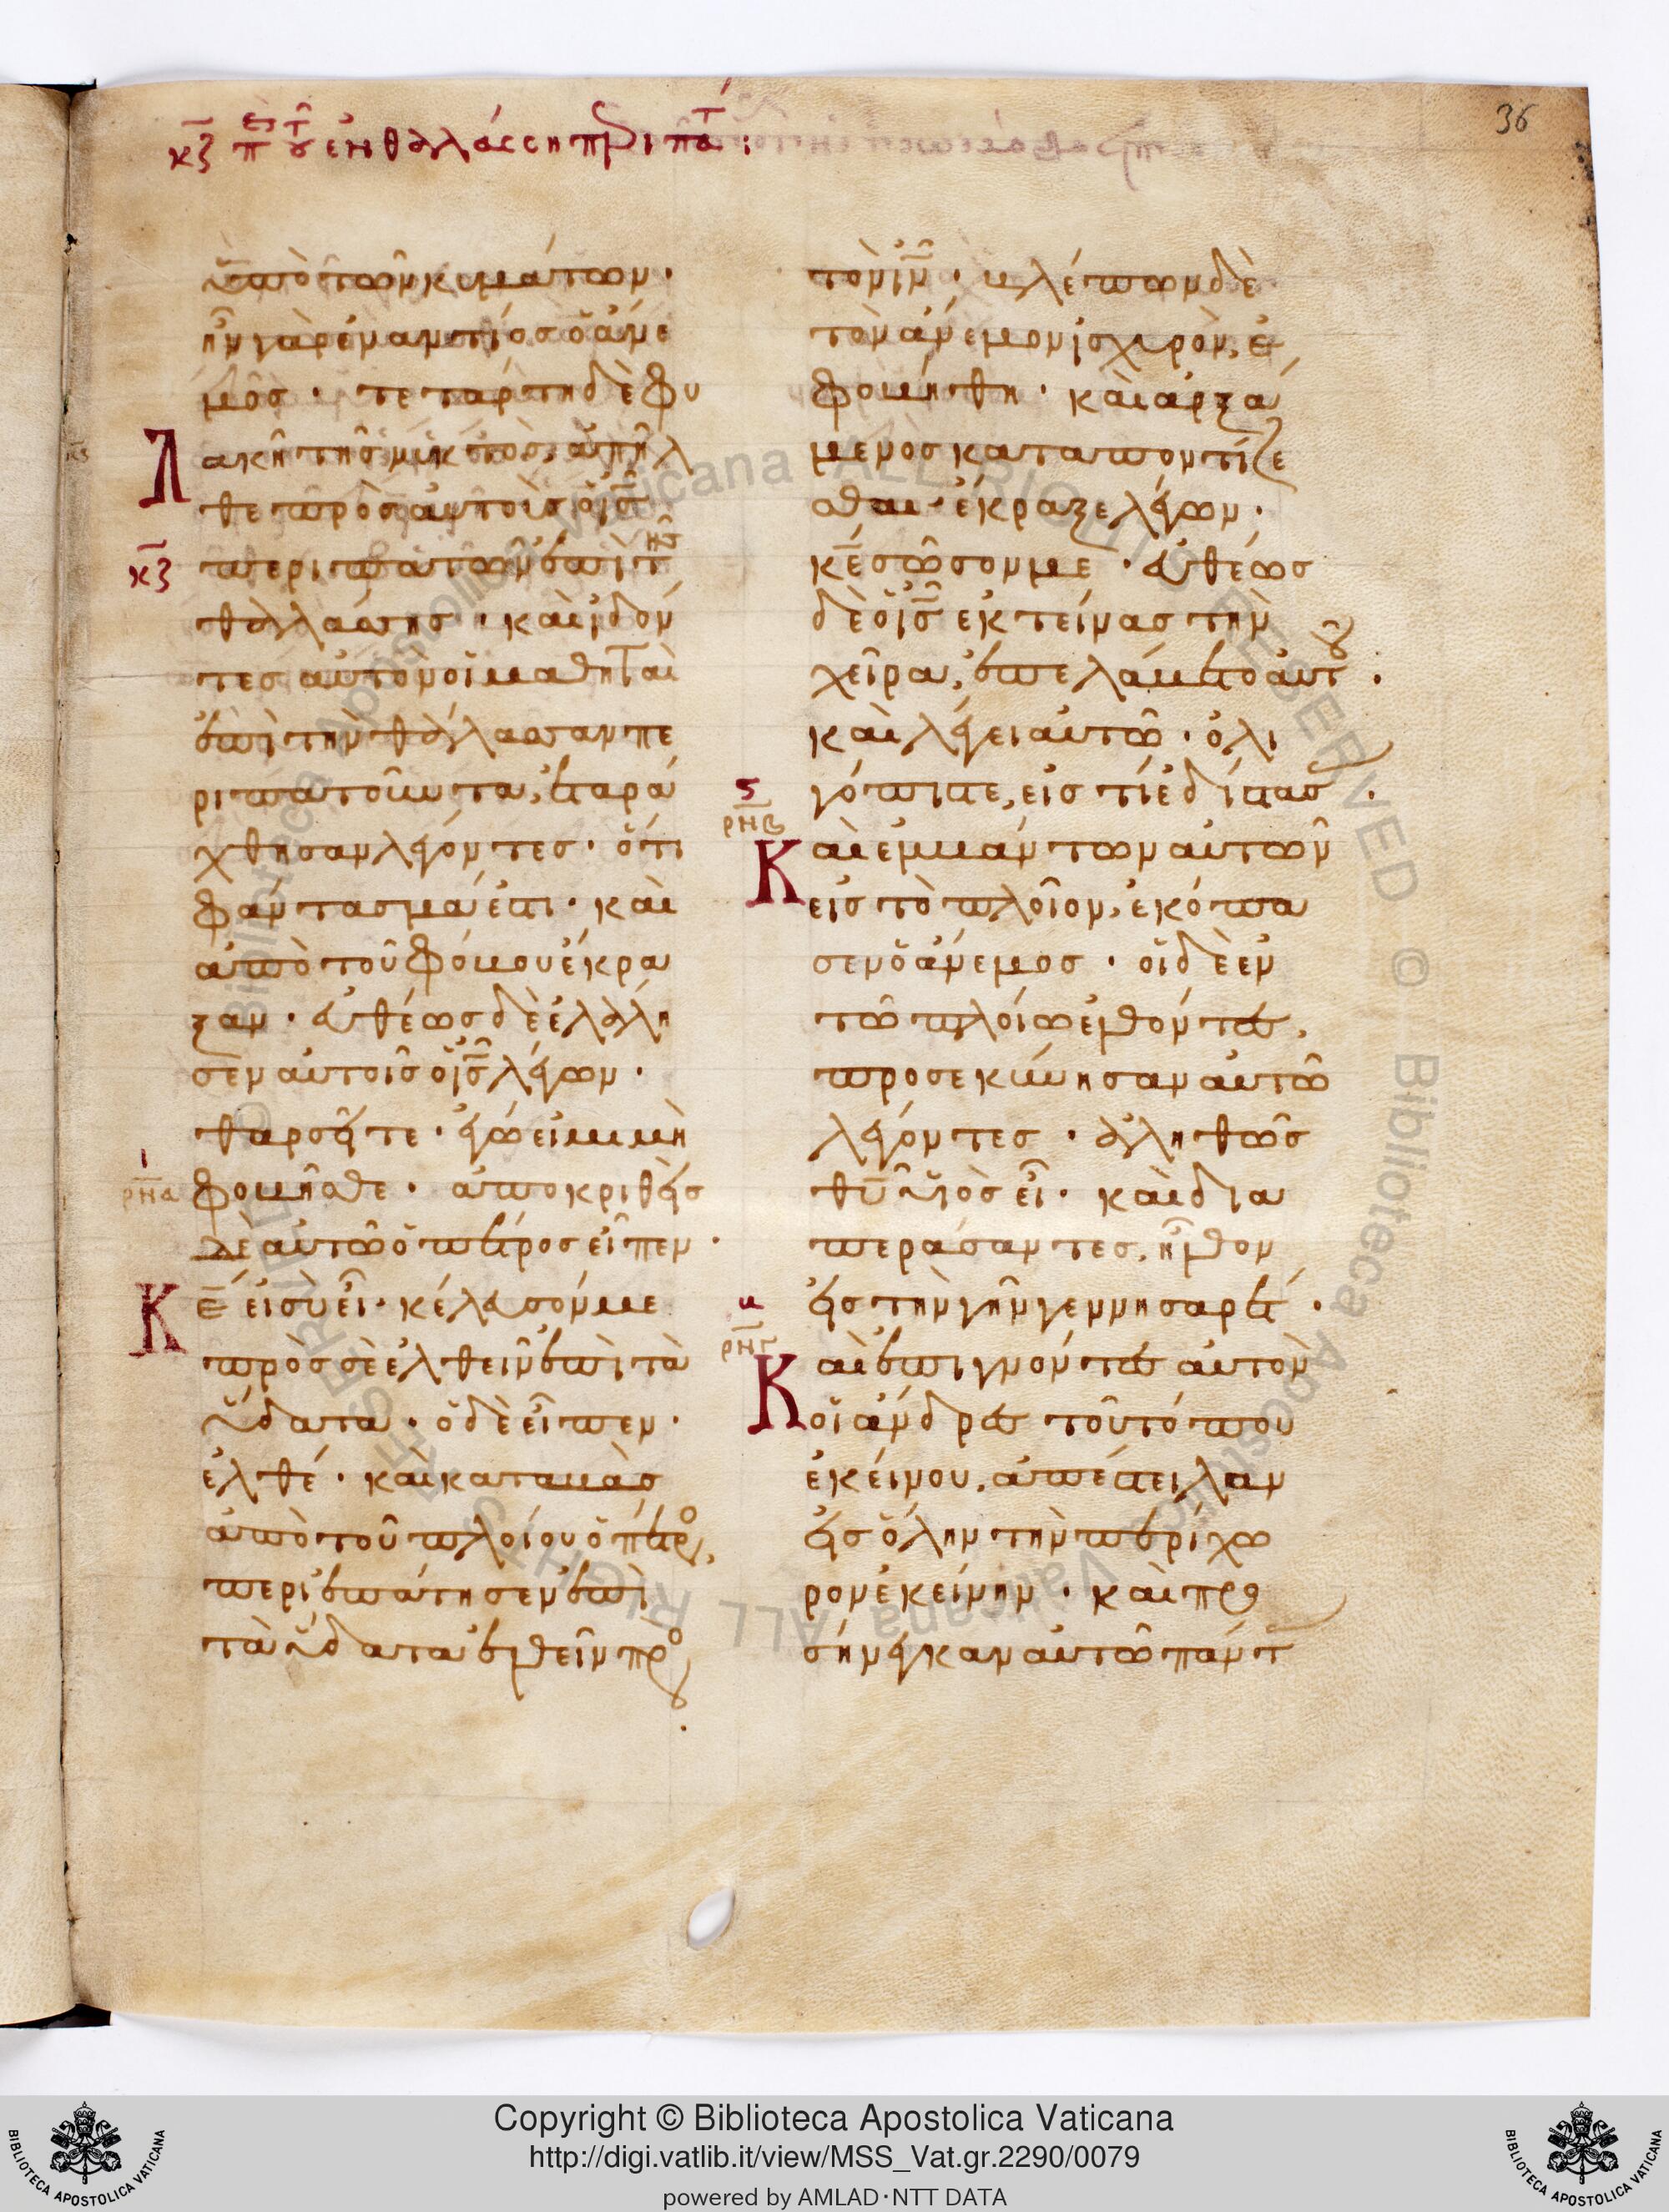 36
κζ πε τοῦ ἐν θαλάσση πδι πατ :
ὑπὸ τῶν κυμάτων ·
ἦν γὰρ ἐναντίος ὁ ἄνε
μος · τετάρτη δὲ φυ
λακῆ τῆς νυκτὸς, ἀπῆλ
θε πρὸς αὐτοὺς ὁ ις
κζ
περιπατῶν ἐπὶ τῆς
θαλάσσης · καὶ ἰδόν
τες αὐτὸν οἱ μαθηταὶ
ἐπὶ τὴν θάλασσαν πε
ριπατοῦντα, ἐταρά
χθησαν λέγοντες · ὅτι
φάντασμά ἐστι · καὶ
ἀπὸ τοῦ φόβου ἔκρα
ξαν · εὐθέως δὲ ἐλάλη
σεν αὐτοῖς ὁ ις λέγων ·
θαρσεῖτε · ἐγώ εἰμι μὴ
ρνα
φοβῆσθε · ἀποκριθεὶς
δὲ αὐτῶ ὁ πέτρος εἶπεν ·
Κε εἰ σὺ εἶ · κέλευσόν με
πρὸς σὲ ἐλθεῖν ἐπὶ τὰ
ὕδατα · ὁ δὲ εἶπεν ·
ἐλθέ · καὶ καταβὰς
ἀπὸ τοῦ πλοίου ὁ πέτρο,
περιεπάτησεν ἐπὶ
τὰ ὕδατα ἐλθεῖν πρὸ
τὸν ιν · βλέπων δὲ
τὸν ἄνεμον ἰσχυρὸν, ἐ
φοβήθη · καὶ ἀρξά
μενος καταποντίζε
σθαι · ἔκραξε λέγων ·
κε σῶσόν με · εὐθέως
δὲ ὁ ις ἐκτείνας τὴν
χεῖρα, ἐπελάβετο αὐτοῦ ·
καὶ λέγει αὐτῶ · ὀλι
γόπιστε, εἰς τί ἐδίστασ ·
ς
ρνβ
Καὶ ἐμβάντων αὐτῶν
εἰς τὸ πλοῖον, ἐκόπα
σεν ὁ ἄνεμος · οἱ δὲ ἐν
τῶ πλοίω ἐλθόντες,
προσεκύνησαν αὐτῶ
λέγοντες · ἀληθῶς
θυ υἱὸς εἶ · καὶ δια
περάσαντες, ἦλθον
εἰς τὴν γῆν γεννησαρέτ ·
β
ρνγ
Καὶ ἐπιγνόντες αὐτὸν
οἱ ἄνδρες τοῦ τόπου
ἐκείνου, ἀπέστειλαν
εἰς ὅλην τὴν περίχω
ρον ἐκείνην · καὶ προ
σήνεγκαν αὐτῶ πάντ
Copyright © Biblioteca Apostolica Vaticana
http://digi.vatlib.it/view/MSS_Vat.gr.2290/0079
powered by AMLAD·NTT DATA